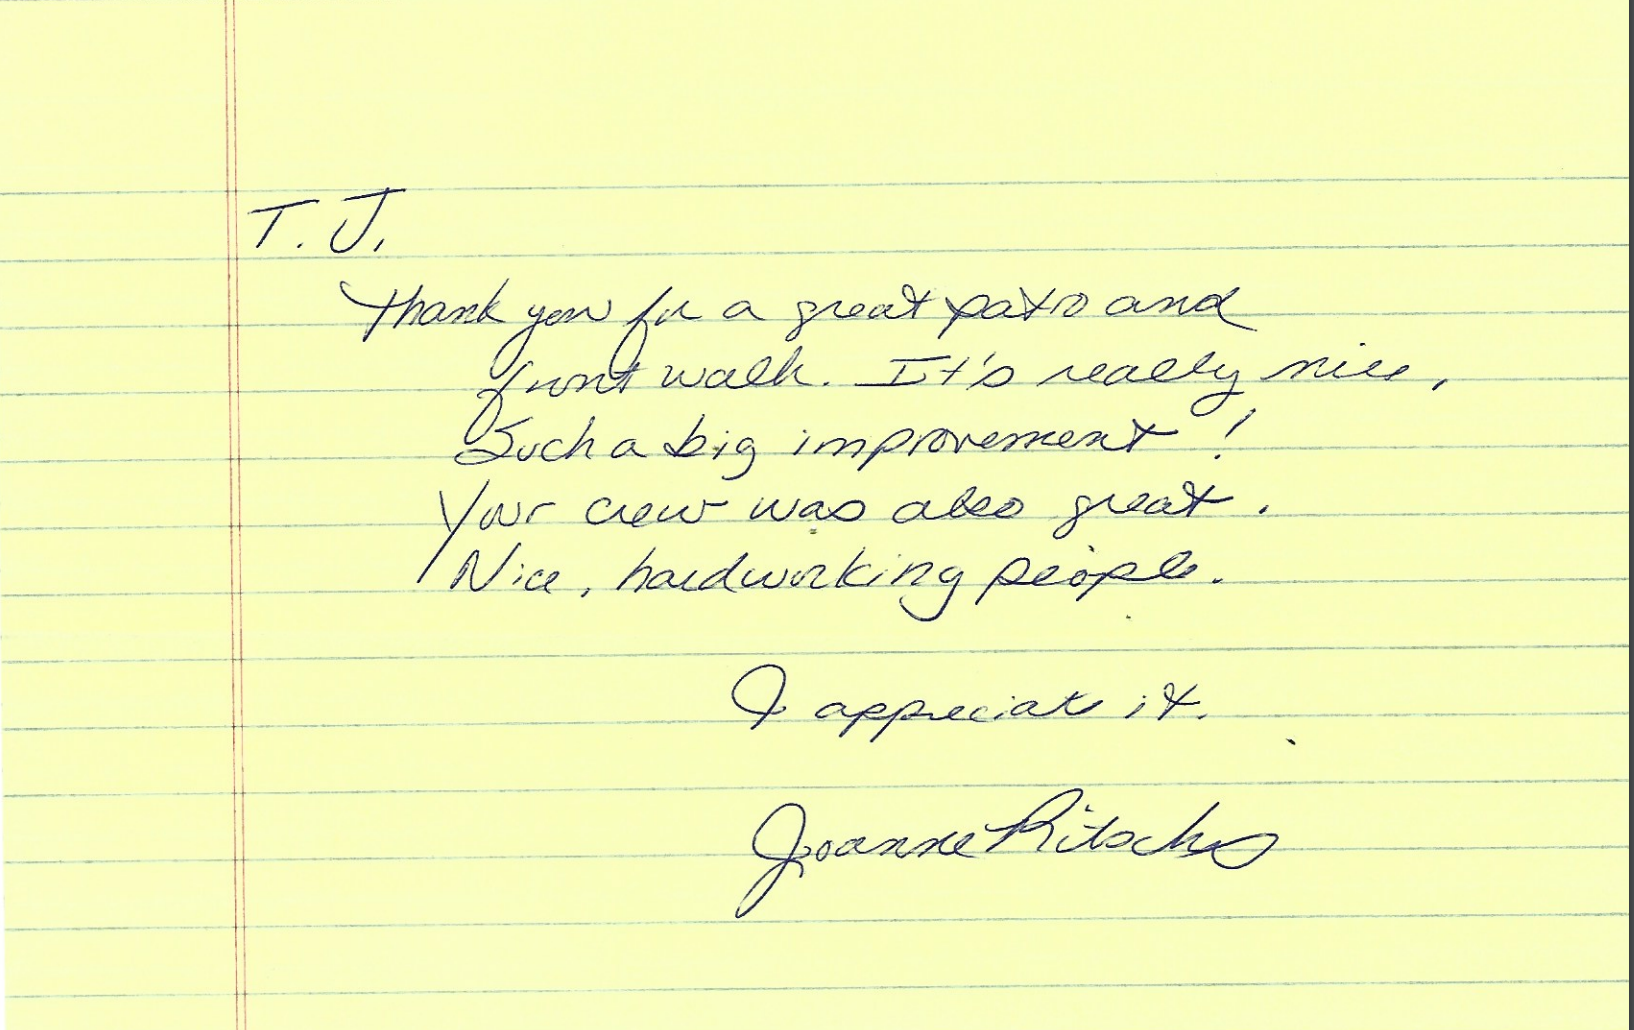 T. J.
Thank you for a great patio and
front walk. It's really nice,
Such a big improvement!
Your crew was also great.
Nice, hardworking people.
I appreciate it.
Joanne